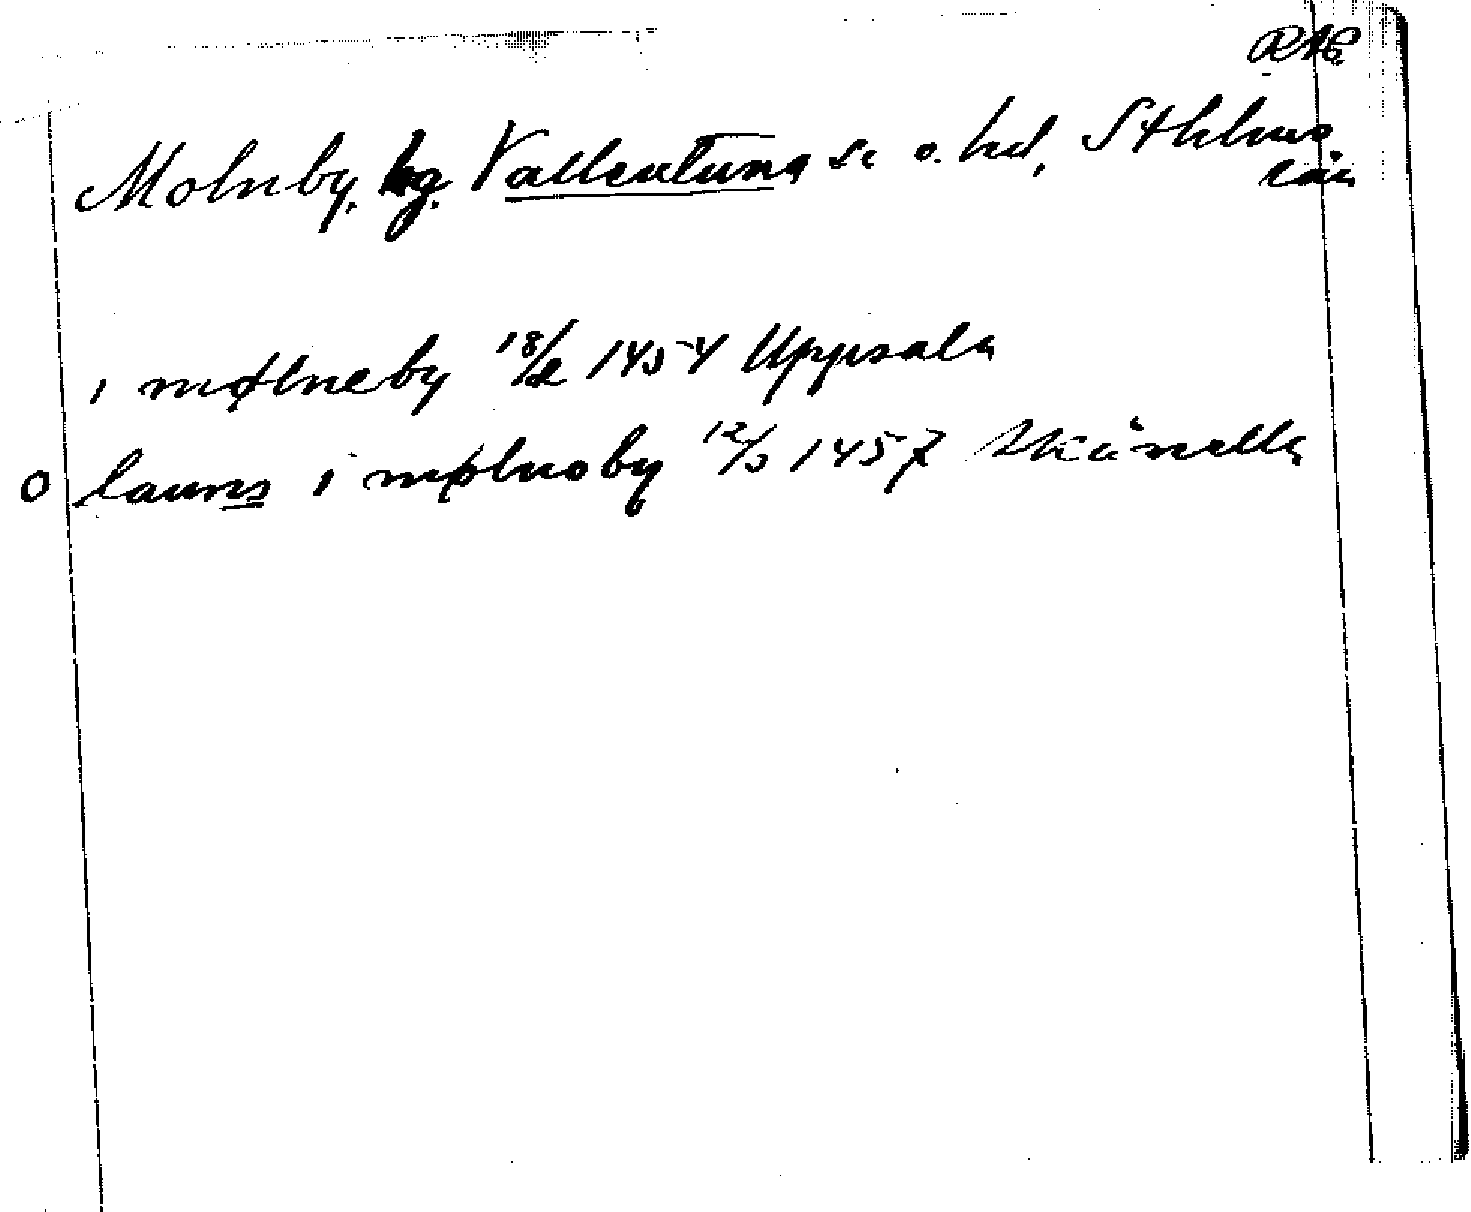 RAP
Molnby, hg. Vallentuna sn o. hd, Sthlms
län
i mølneby 18/2 1454 Uppsala
o laurns i mølnoby 12/3 1457 Skånella